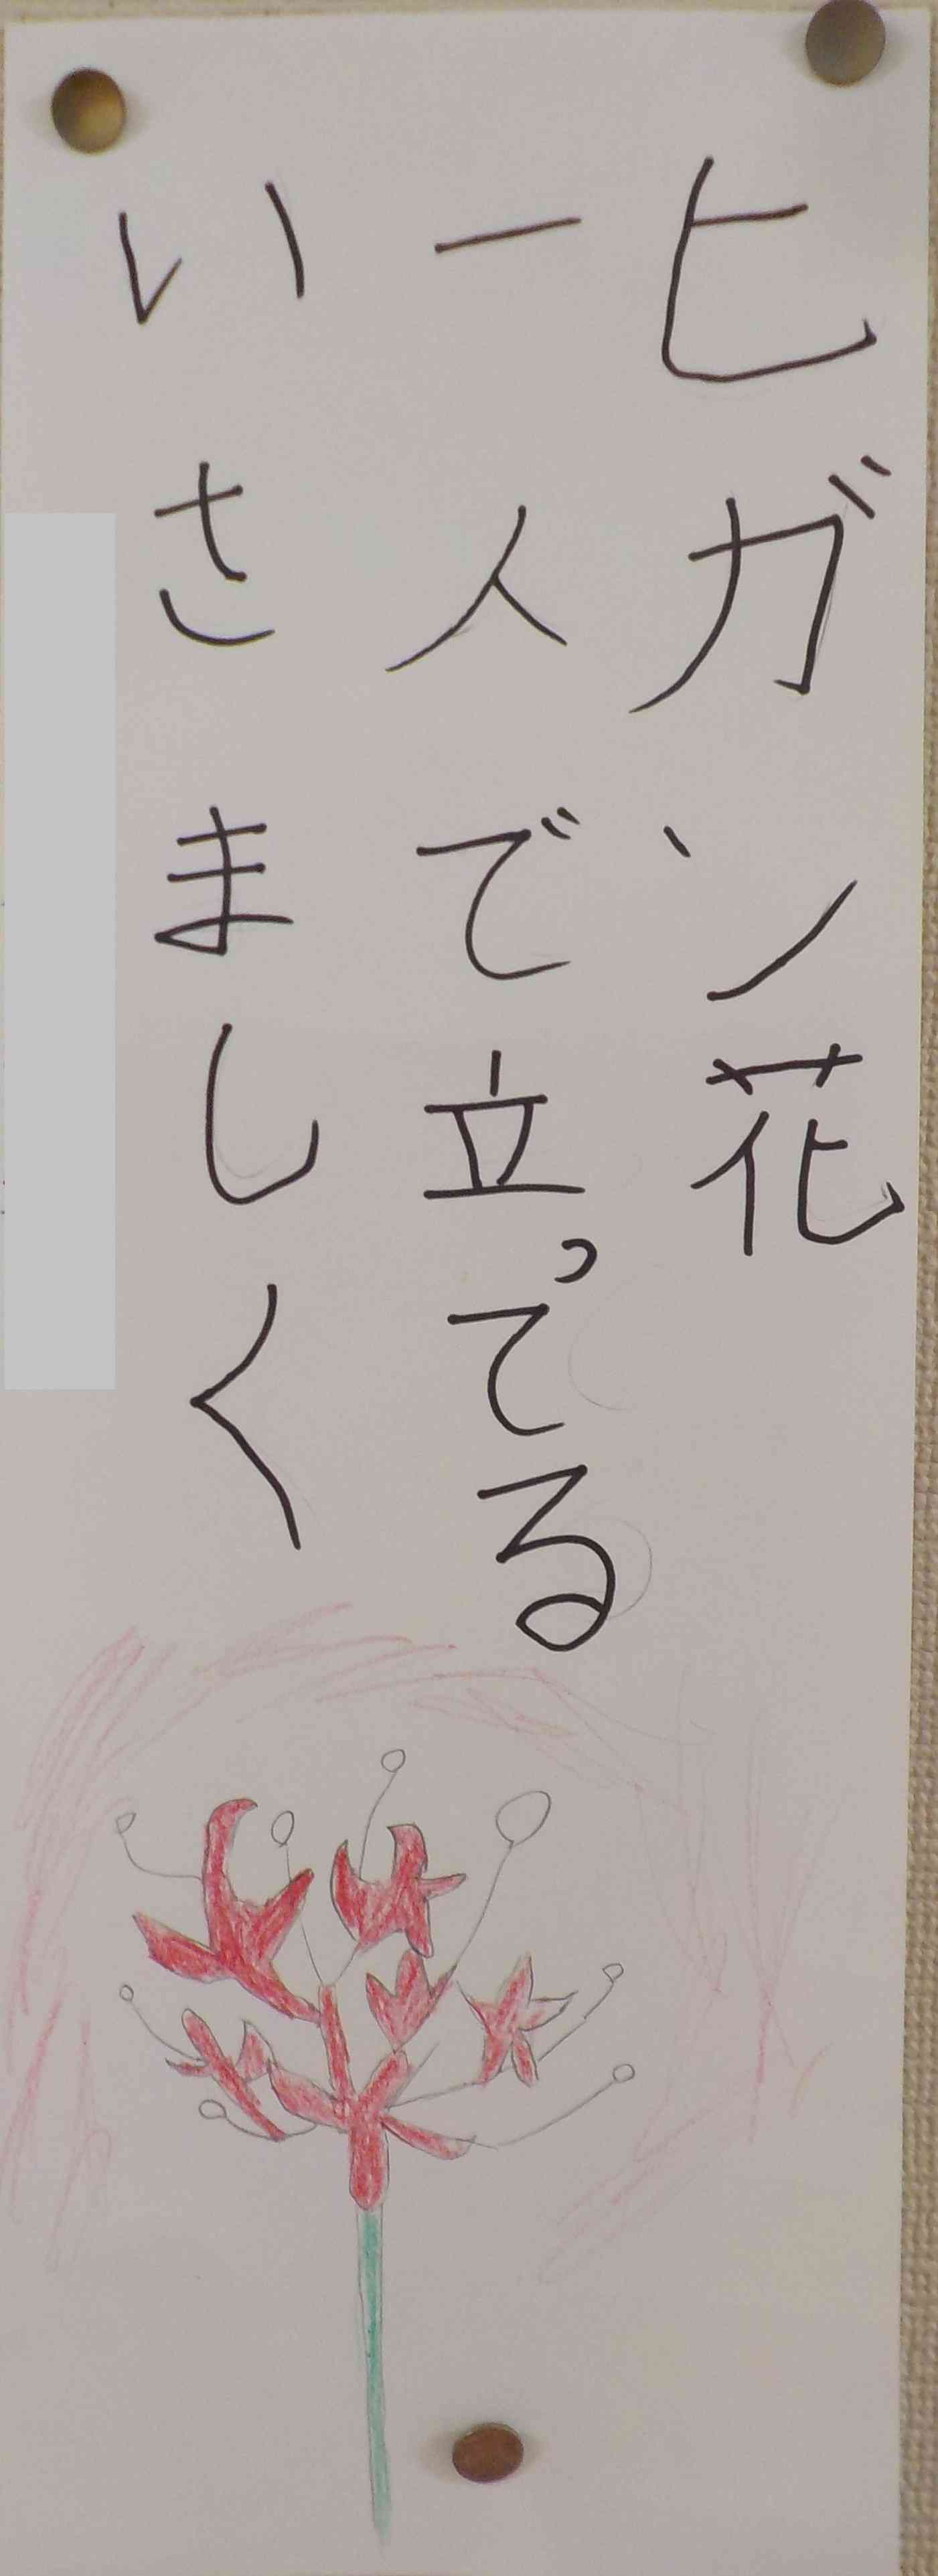 ヒガン花
一人で立ってる
いさましく